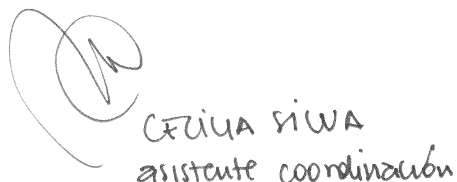 CECILIA SILVA
asistente coordinación